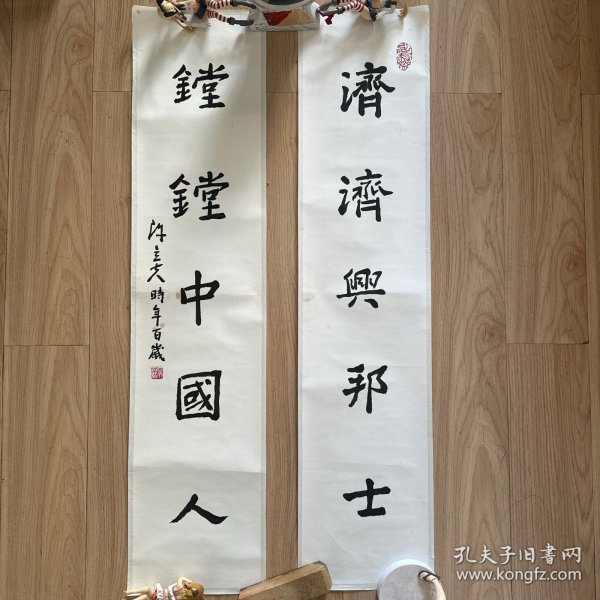 濟濟興邦士
鏜鏜中國人
陳立夫時年百歲
孔夫子旧書网
www.kongfz.com